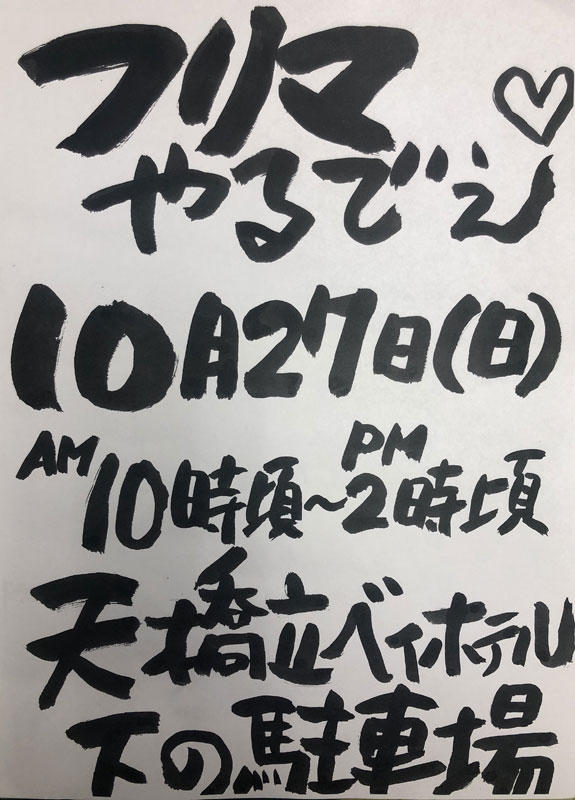 フリマ
やるでぇ
10月27日(日)
AM10時頃~PM2時頃
天橋立ベイホテル
下の駐車場